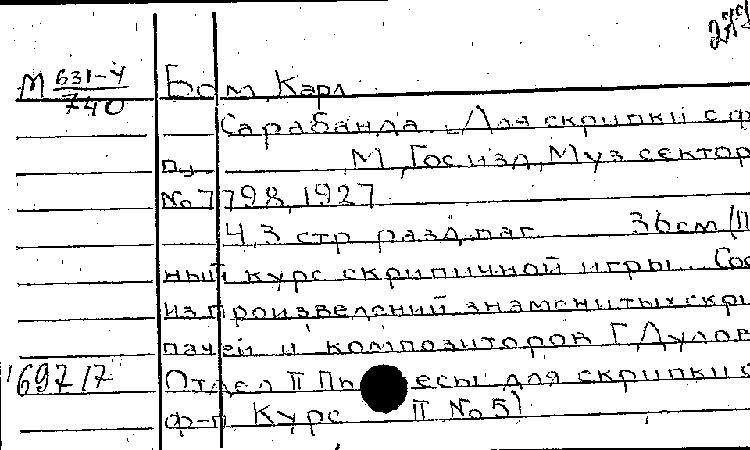 М 631-4/740 Бом, Карл
Сарабанда. Для скрипки с ф
п. М, Госизд, Муз сектор
No 7798, 1927
4, 3 стр разд паг 36см (П
ный курс скрипичной игры. Сос
из произведений знаменитых скри
пачей и композиторов Г. Дулов
169717 Отдел II Пьесы для скрипки с
ф-п Курс II No 5)